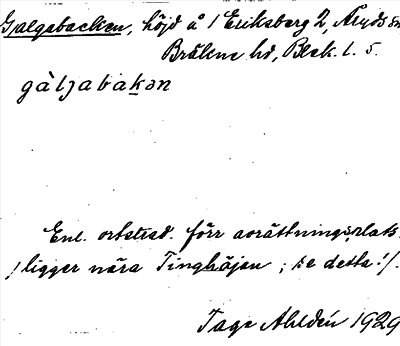 Galgabacken, höjd å 1 Eriksberg 2, Åryds sn
Bräkne hd, Blek. l. 5.
gàljabakən
Enl. ortstrad. förr avrättningsplats
/ligger nära Tinghöjen ; se detta!/.
Tage Ahldén 1929